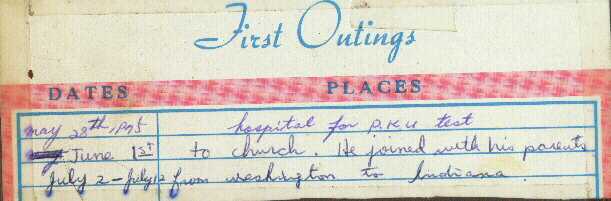 First Outings
DATES PLACES
May 28th, 1975 hospital for P.K.U test
June 1st to church He joined with his parents
July 2 - July 12 from washington to Indiana.